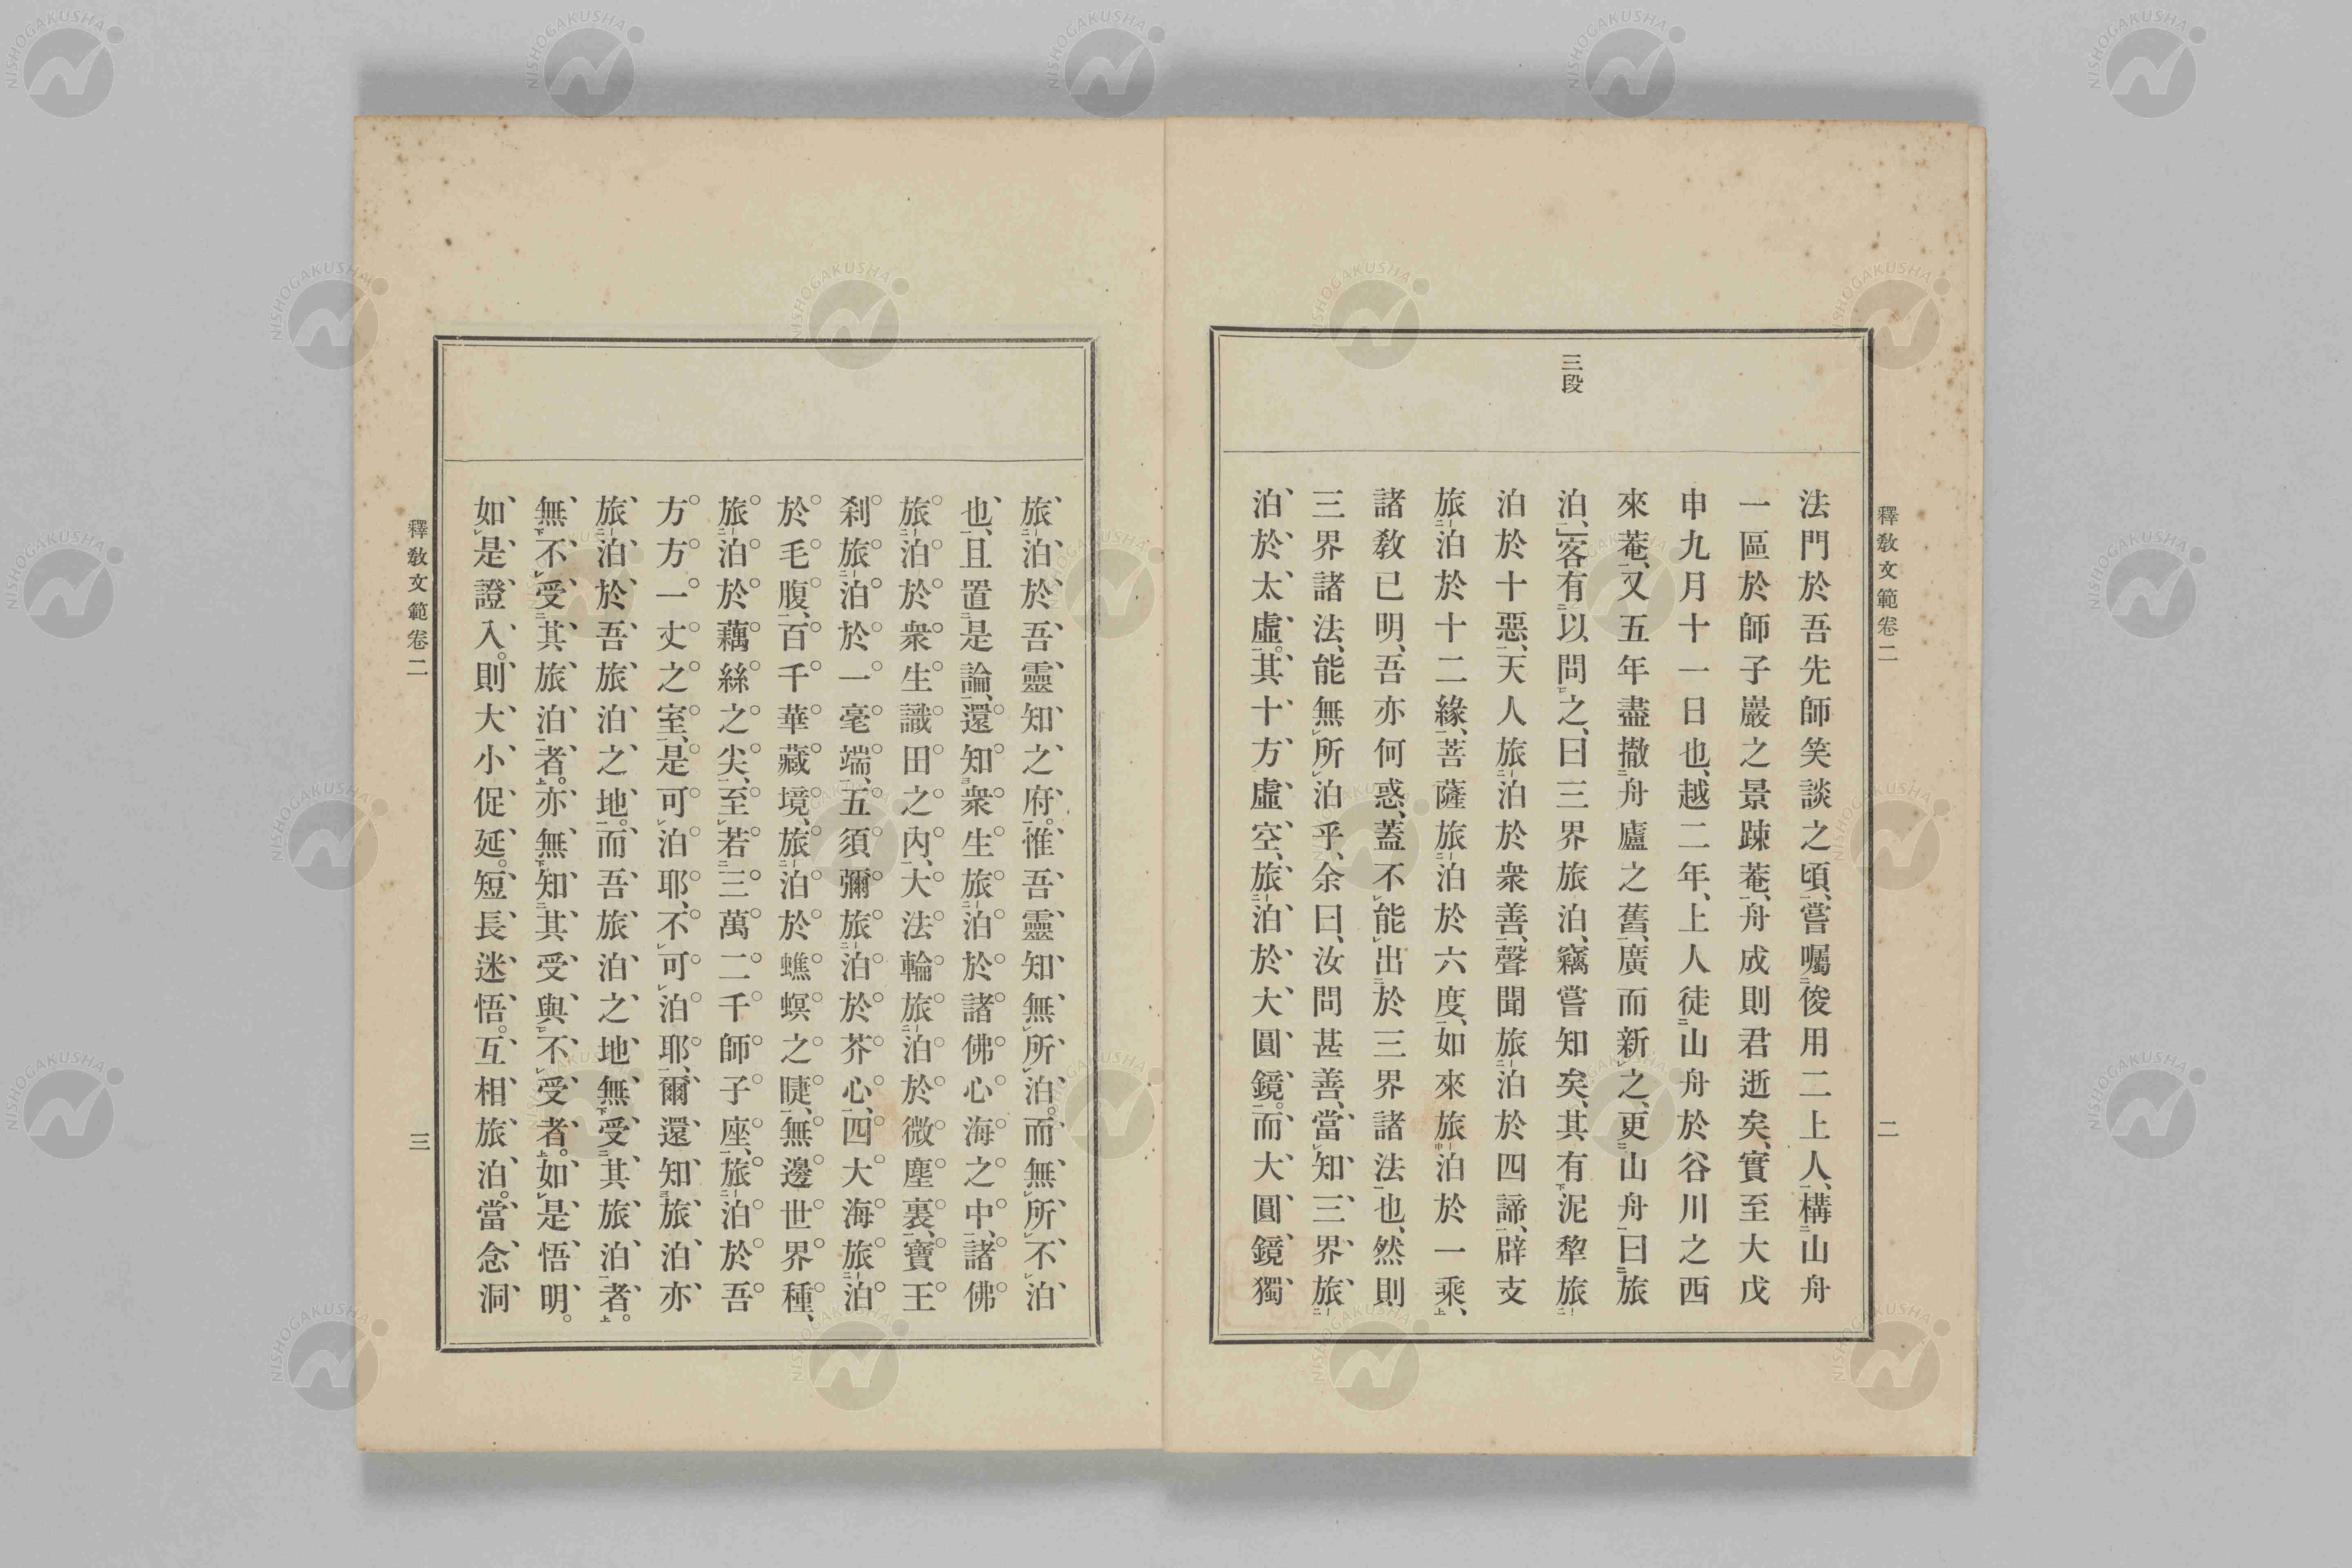 釋敎文範卷二
二
三段
法門於吾先師笑談之頃、嘗囑俊用二上人、構山舟
一區於師子巖之景踈菴、舟成則君逝矣、實至大戊
申九月十一日也、越二年、上人徒山舟於谷川之西
來菴、又五年盡撤舟廬之舊、廣而新之、更山舟曰旅
泊、客有以問之、曰三界旅泊、竊嘗知矣、其有泥犂旅
泊於十惡、天人旅泊於衆善、聲聞旅泊於四諦、辟支
旅泊於十二緣、菩薩旅泊於六度、如來旅泊於一乘、
諸敎已明、吾亦何惑、蓋不能出於三界諸法也、然則
三界諸法、能無所泊乎、余曰、汝問甚善、當知三界、旅
泊於太虛。其十方虛空、旅泊於大圓鏡。而大圓鏡獨
旅泊於吾靈知之府。惟吾靈知無所泊。而無所不泊
也、且置是論、還知衆生旅泊於諸佛心海之中、諸佛
旅泊於衆生識田之內、大法輪旅泊於微塵裏、寶王
刹旅泊於一毫端、五須彌旅泊於芥心、四大海旅泊
於毛腹、百千華藏境、旅泊於蟭螟之睫、無邊世界種、
旅泊於藕絲之尖、至若三萬二千師子座、旅泊於吾
方方一丈之室、是可泊耶、不可泊耶、爾還知旅泊亦
旅泊於吾旅泊之地。而吾旅泊之地無受其旅泊者。
無不受其旅泊者。亦無知其受與不受者。如是悟明。
如是證入。則大小促延。短長迷悟。互相旅泊。當念洞
釋敎文範卷二
三
NISHOGAKUSHA